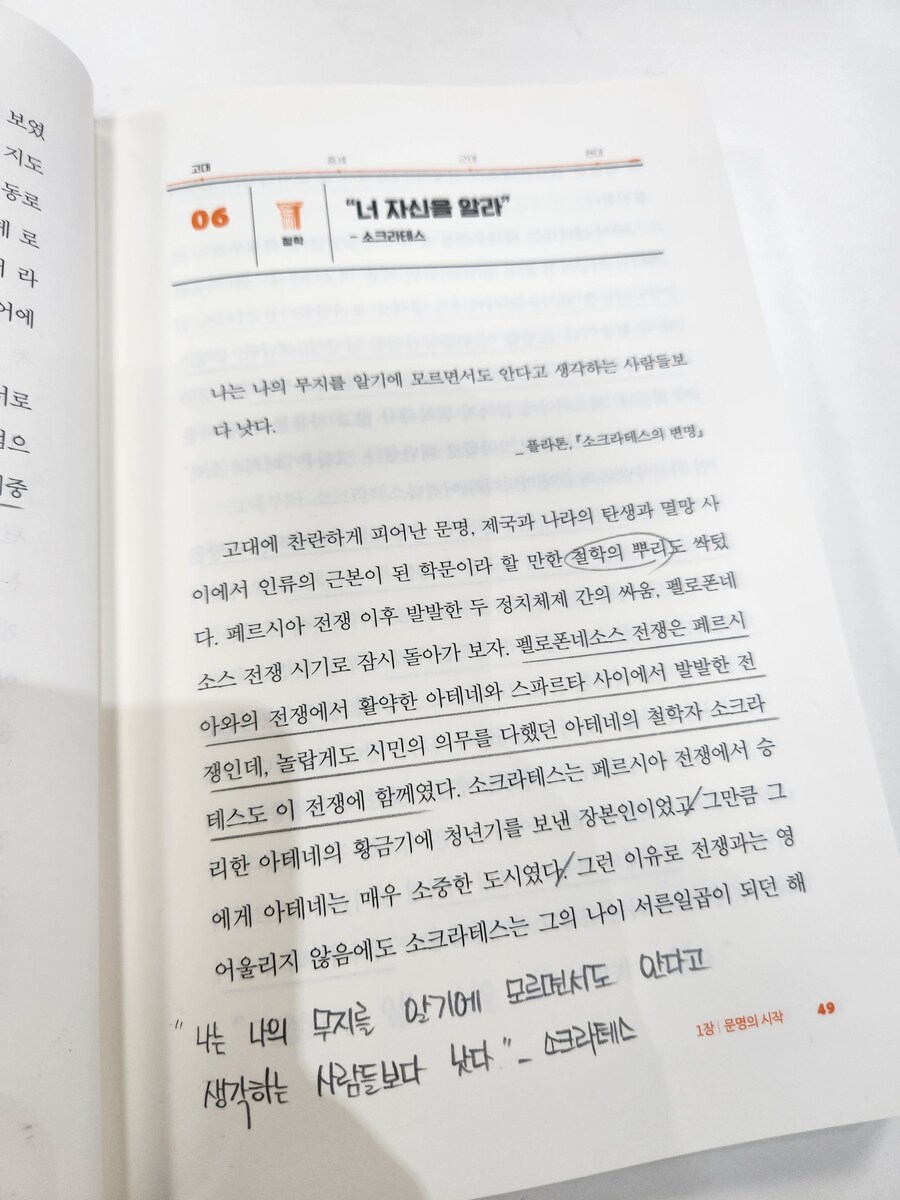 보였
지도
동로
라
어에
서로
음으
중
고대
중세
근대
현대
06
철학
“너 자신을 알라”
- 소크라테스
나는 나의 무지를 알기에 모르면서도 안다고 생각하는 사람들보
다 낫다.
_ 플라톤, 『소크라테스의 변명』
고대에 찬란하게 피어난 문명, 제국과 나라의 탄생과 멸망 사
이에서 인류의 근본이 된 학문이라 할 만한 철학의 뿌리도 싹텄
다. 페르시아 전쟁 이후 발발한 두 정치체제 간의 싸움, 펠로폰네
소스 전쟁 시기로 잠시 돌아가 보자. 펠로폰네소스 전쟁은 페르시
아와의 전쟁에서 활약한 아테네와 스파르타 사이에서 발발한 전
쟁인데, 놀랍게도 시민의 의무를 다했던 아테네의 철학자 소크라
테스도 이 전쟁에 함께였다. 소크라테스는 페르시아 전쟁에서 승
리한 아테네의 황금기에 청년기를 보낸 장본인이었고 그만큼 그
에게 아테네는 매우 소중한 도시였다. 그런 이유로 전쟁과는 영
어울리지 않음에도 소크라테스는 그의 나이 서른일곱이 되던 해
"나는 나의 무지를 알기에 모르면서도 안다고
생각하는 사람들보다 낫다." - 소크라테스
1장 | 문명의 시작 49